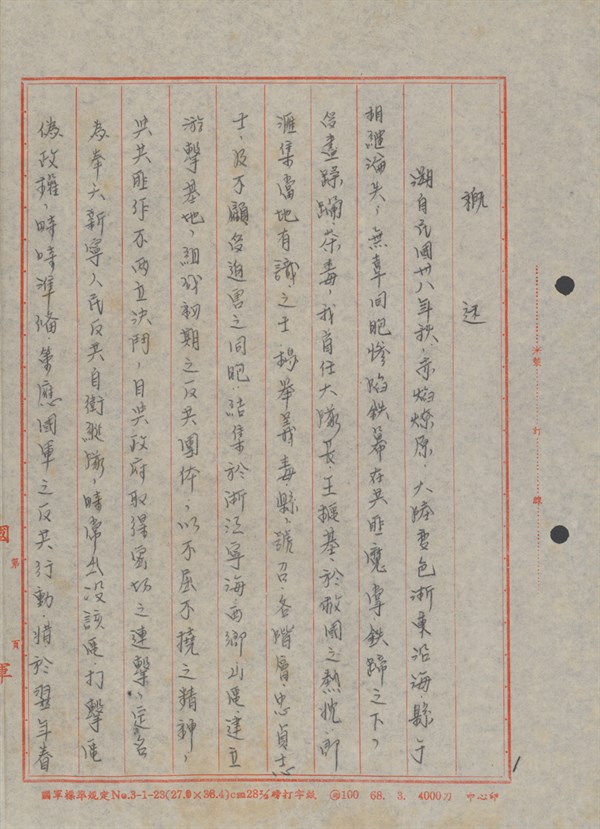 概述
溯自民國卅八年秋,赤焰燎原,大陸變色浙東沿海縣市
相繼淪失,無辜同胞慘陷鉄幕在共匪魔掌鉄蹄之下,
備盡蹂躪荼毒,我首任大隊長王權基於救國之熱忱,即
滙集當地有識之士,揭舉義毒縣,號召各階層忠貞志
士,及不願受迫害之同胞,結集於浙江寧海西鄉山區建立
游擊基地,組成初期之反共團体,以不屈不撓之精神,
與共匪作不兩立決鬥,自與政府取得密切之連繫,定名
為奉六新寧人民反共自衛縱隊,時常出沒該區,打擊匪
偽政權,時時準備,策應國軍之反共行動,惜於翌年春
1
裝 訂 線
國 第 頁 軍
國軍標準規定No.3-1-23(27.0×38.4)cm28½磅打字紙 100 68. 3. 4000刀 中心印